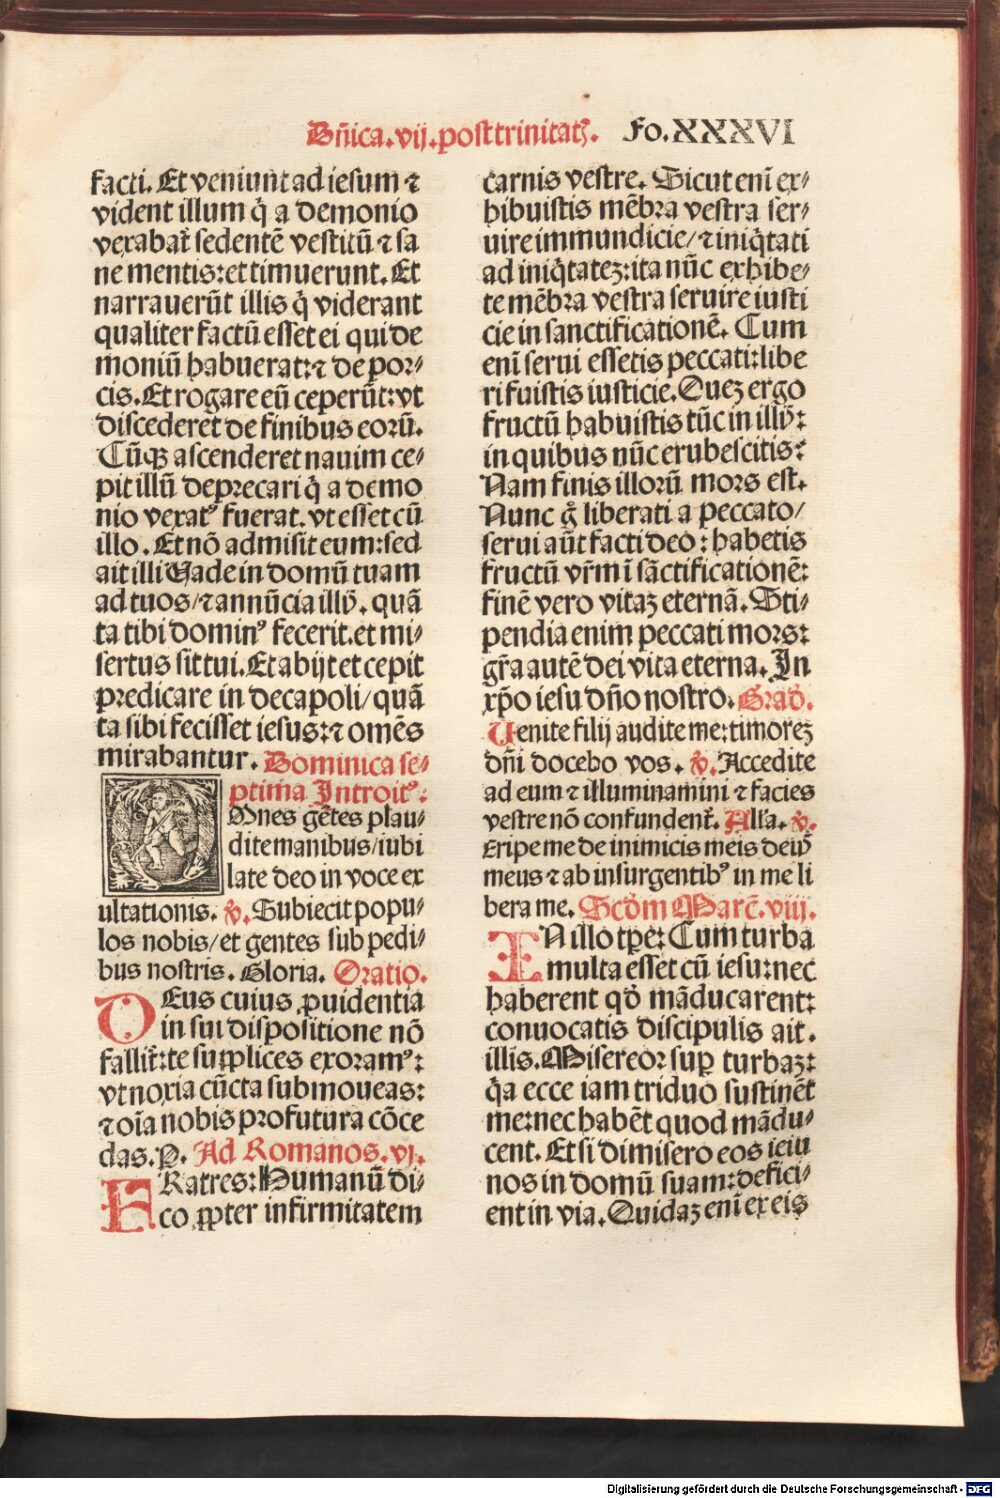 Dñica.vij.post trinitatꝭ. Fo.XXXVI
facti. Et veniunt ad iesum ⁊
vident illum q̄ a demonio
vexabat̄ sedentē vestitū ⁊ sa
ne mentis: et timuerunt. Et
narrauerūt illis q̄ viderant
qualiter factū esset ei qui de
moniū habuerat: ⁊ de por⸗
cis. Et rogare eū ceperūt: vt
discederet de finibus eorū.
Cūqꝫ ascenderet nauim ce⸗
pit illū deprecari q̄ a demo
nio vexatꝰ fuerat. vt esset cū
illo. Et nō admisit eum: sed
ait illi Vade in domū tuam
ad tuos/ ⁊ annūcia illꝭ. quā
ta tibi dominꝰ fecerit. et mi⸗
sertus sit tui. Et abijt et cepit
predicare in decapoli/ quā
ta sibi fecisset iesus: ⁊ omēs
mirabantur. Dominica se⸗
ptima Introitꝰ.
Omnes gētes plau⸗
dite manibus/ iubi
late deo in voce ex
ultationis. ℣. Subiecit popu⸗
los nobis/ et gentes sub pedi⸗
bus nostris. Gloria. Oratio.
DEus cuius ꝓuidentia
in sui dispositione nō
fallit̄: te supplices exoramꝰ:
vt noxia cūcta submoueas:
⁊ oīa nobis profutura cōce
das. P. Ad Romanos. vi.
FRatres: Humanū di⸗
co ꝓpter infirmitatem
carnis vestre. Sicut enī ex⸗
hibuistis mēbra vestra ser⸗
uire immundicie/ ⁊ iniq̄tati
ad iniq̄tateꝫ: ita nūc exhibe⸗
te mēbra vestra seruire iusti
cie in sanctificationē. Cum
enī serui essetis peccati: libe
ri fuistis iusticie. Queꝫ ergo
fructū habuistis tūc in illꝭ:
in quibus nūc erubescitis?
Nam finis illorū mors est.
Nunc g̊ liberati a peccato/
serui aūt facti deo: habetis
fructū vr̄m ī sāctificationē:
finē vero vitaꝫ eternā. Sti⸗
pendia enim peccati mors:
gr̄a autē dei vita eterna. In
xp̄o iesu dn̄o nostro. Grad̄.
Uenite filij audite me: timoreꝫ
dn̄i docebo vos. ℣. Accedite
ad eum ⁊ illuminamini ⁊ facies
vestre nō confundent̄. Alľa. ℣.
Eripe me de inimicis meis deꝰ
meus ⁊ ab insurgentibꝰ in me li
bera me. Scd̄m Marc̄. viij.
IN illo tp̄e: Cum turba
multa esset cū iesu: nec
haberent qd̄ māducarent:
conuocatis discipulis ait.
illis. Misereor suꝑ turbaꝫ:
q̄a ecce iam triduo sustinēt
me: nec habēt quod mādu⸗
cent. Et si dimisero eos ieiu
nos in domū suam: defici⸗
ent in via. Quidaꝫ enī ex eis
Digitalisierung gefördert durch die Deutsche Forschungsgemeinschaft - DFG